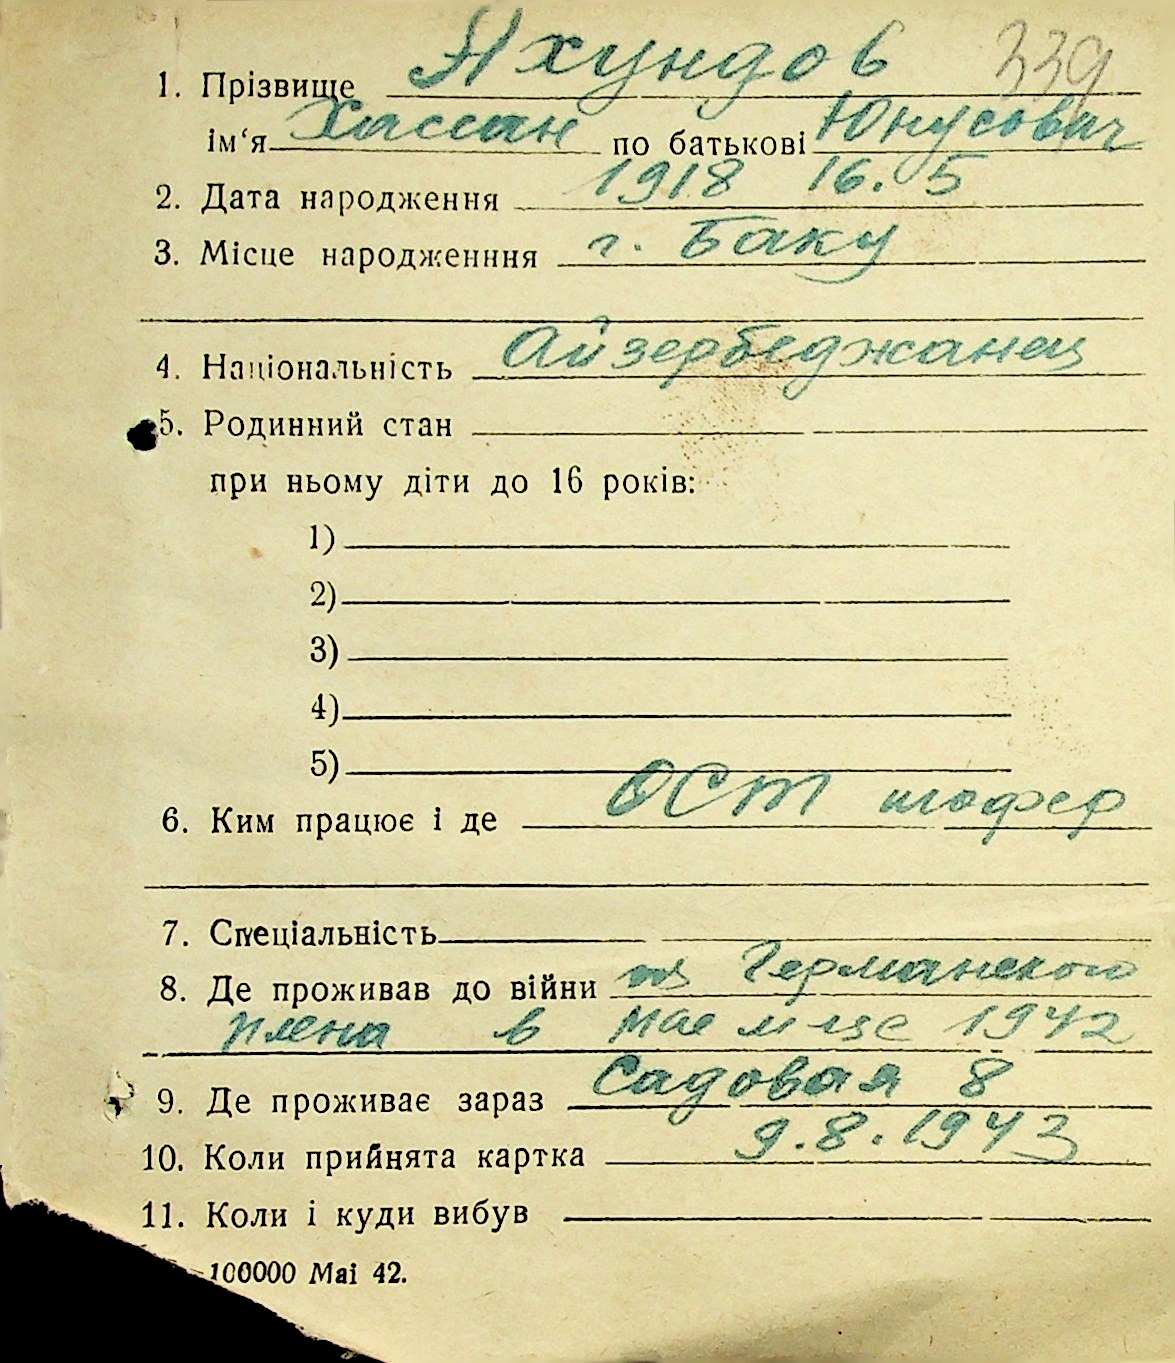 339
1. Прізвище Яхундов
ім‘я Хассан по батькові Юнусович
2. Дата народження 1918 16.5
3. Місце народженння г. Баку
4. Національність Айзербеджанец
5. Родинний стан
при ньому діти до 16 років:
1)
2)
3)
4)
5)
6. Ким працює і де ОСТ шофер
7. Спеціальність
8. Де проживав до війни из Германского
плена в мае м-це 1942
9. Де проживає зараз Садовая 8
10. Коли прийнята картка 9.8.1943
11. Коли і куди вибув
100000 Mai 42.